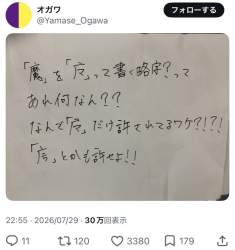 オガワ
@Yamase_Ogawa
フォローする
「魔」を「」って書く略字?って
あれ何なん??
なんで「」だけ許されてるワケ?!?!
「」とかも許せよ!!
22:55 · 2026/07/29 · 30万回表示
11 120 3380 179